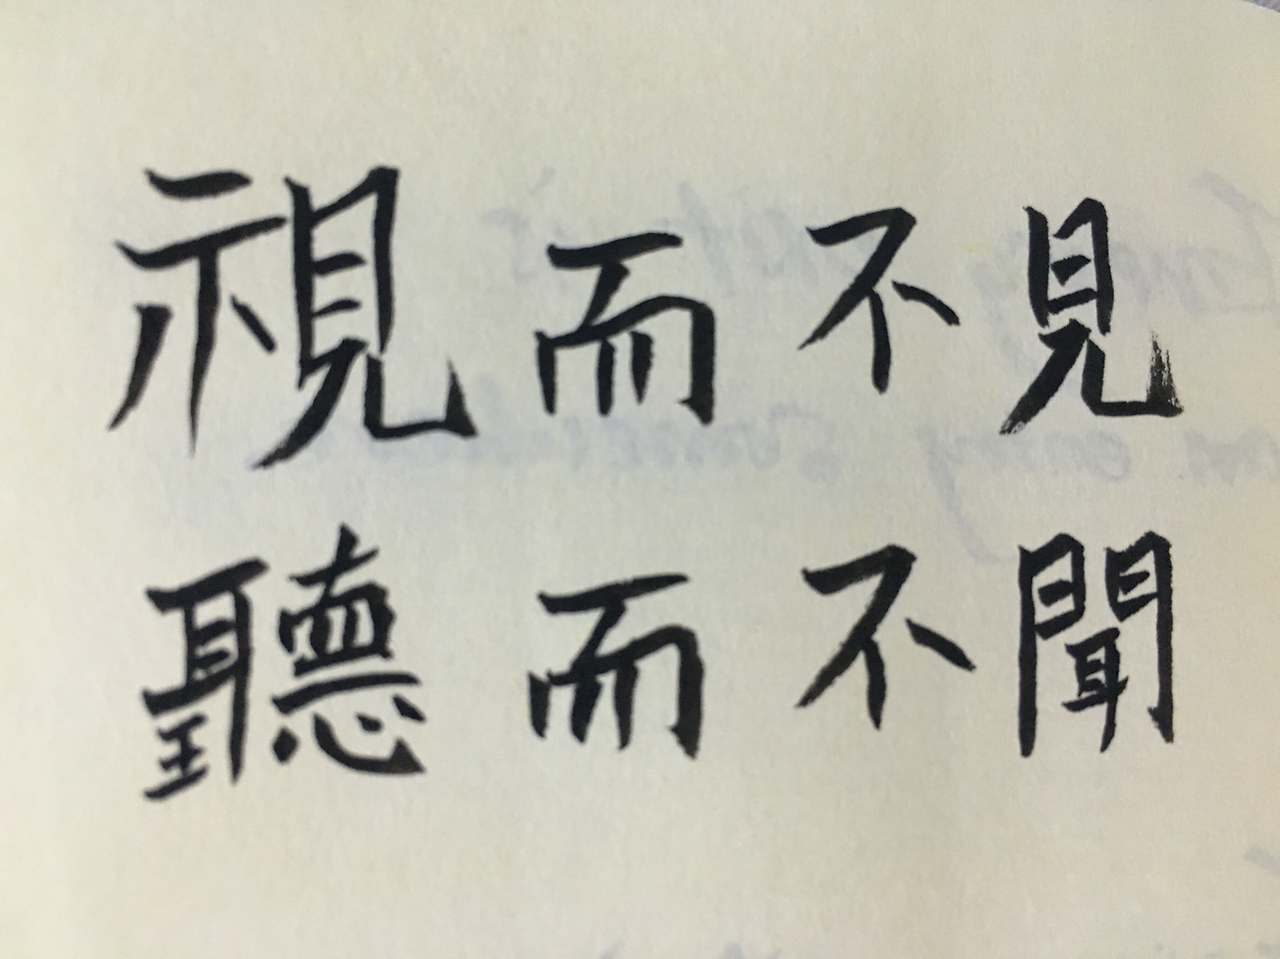 視而不見
聽而不聞